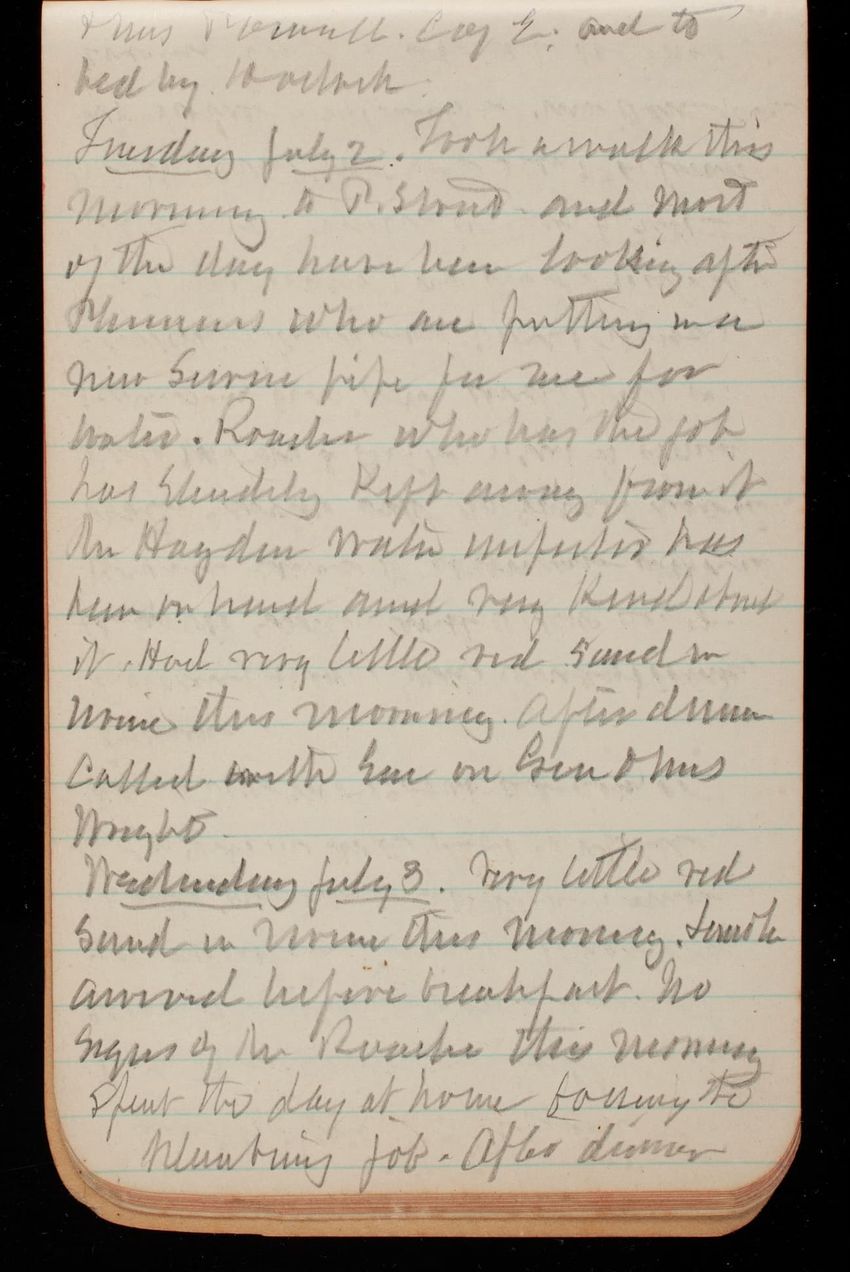 & Mrs Powell. Coy E. and to
bed by 10 oclock.
Tuesday July 2. Took a walk this
morning to P. and most
of the day have been looking after
Plumbers who are putting in a
new pipe for me for
water. Roache who has the job
has steadily kept away from it
The Hayden water inspector has
been on hand and very kind about
it. Had very little red sand in
urine this morning. After dinner
called with Eva on Gen & Mrs
Wright.
Wednesday July 3. Very little red
sand in urine this morning.
arrived before breakfast. No
signs of the Roache this morning
Spent the day at home bossing the
plumbing job. After dinner